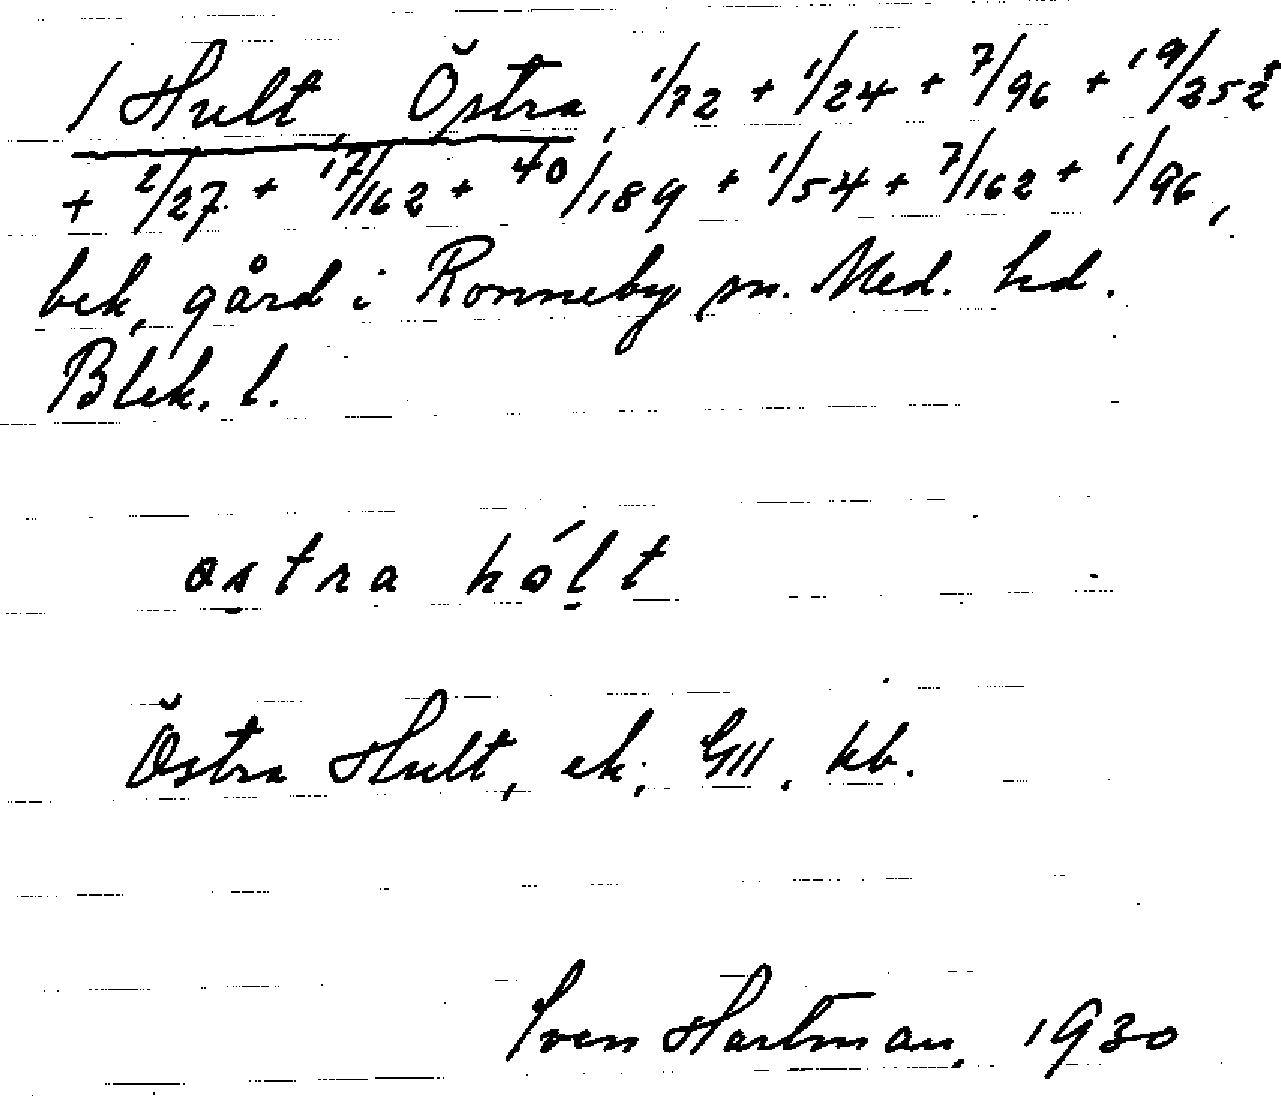 1 Hult, Östra, 1/72 + 1/24 + 7/96 + 19/252
+ 2/27 + 17/162 + 40/189 + 1/54 + 7/162 + 1/96,
bek. gård i Ronneby sn. Med. hd.
Blek. l.
östra hólt
Östra Hult, ek; GII. kb.
Sven Hartman, 1930